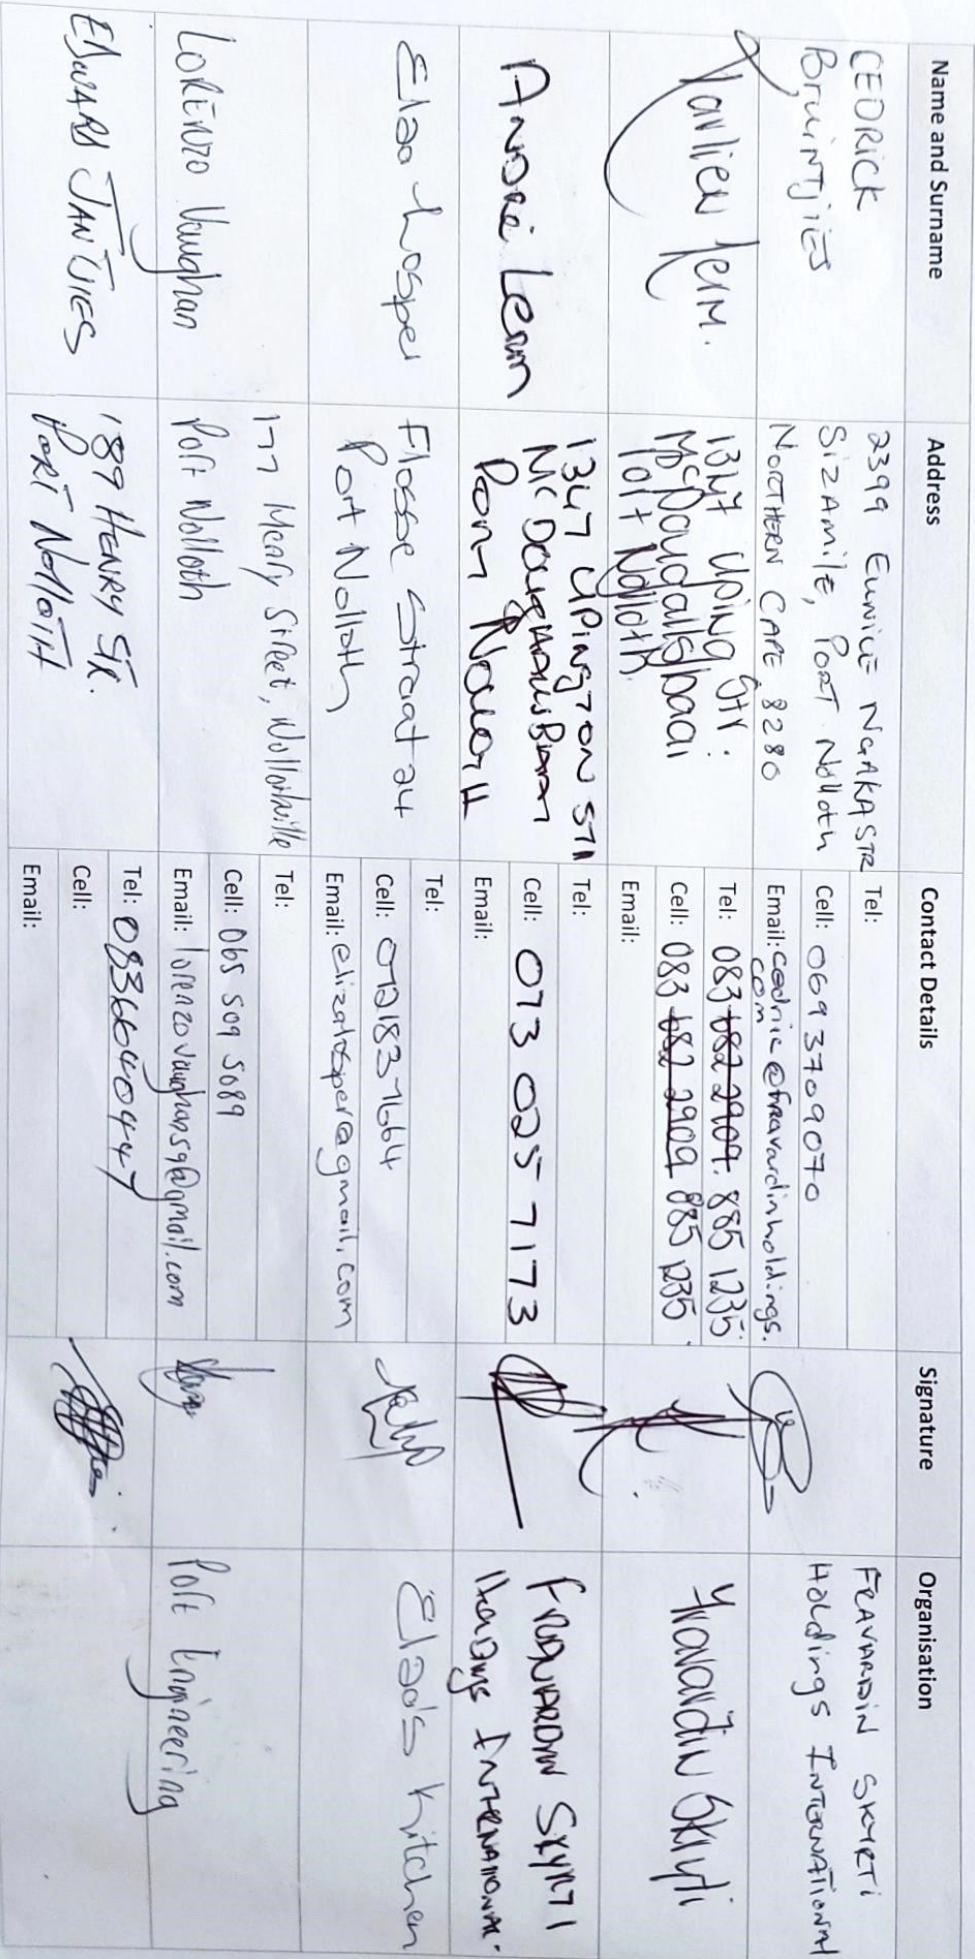 Name and Surname
Address
Contact Details
Signature
Organisation
CEDRICK
BruiNTjiES
2399 EUNICE NGAKASTR
SizAmilE, PORT Nolloth
NORTHERN CAPE 8280
Tel:
Cell: 069 370 9070
Email: cedric@fravardinholdings.
com
FRAVARDIN SKYRTI
HOLdings INTERNATIONAL
1347 Uping Str.
McDougallsbaai
Port Nolloth.
Tel: 083 682 2909. 885 1235.
Cell: 083 682 2909 885 1235.
Email:
Fravardin Skyrti
ANDRé Lerm
1347 UPINGTON STR
Port Nolloth
Tel:
Cell: 073 025 7173
Email:
FRAVARDIN SKYRTI
HOLDINGS INTERNATIONAL.
Elza Losper
Flosse Straat 24
Port Nolloth
Tel:
Cell: 0721837664
Email: elizalosper@gmail.com
Elza's Kitchen
LORENZO Vaughan
177 Meary Street, Nollothville
Port Nolloth
Tel:
Cell: 065 509 5089
Email: lorenzovaughan59@gmail.com
Port Engineering
EDWARD JANTJIES
189 HENRY STR.
PORT NOLLOTH
Tel: 0836640447
Cell:
Email: